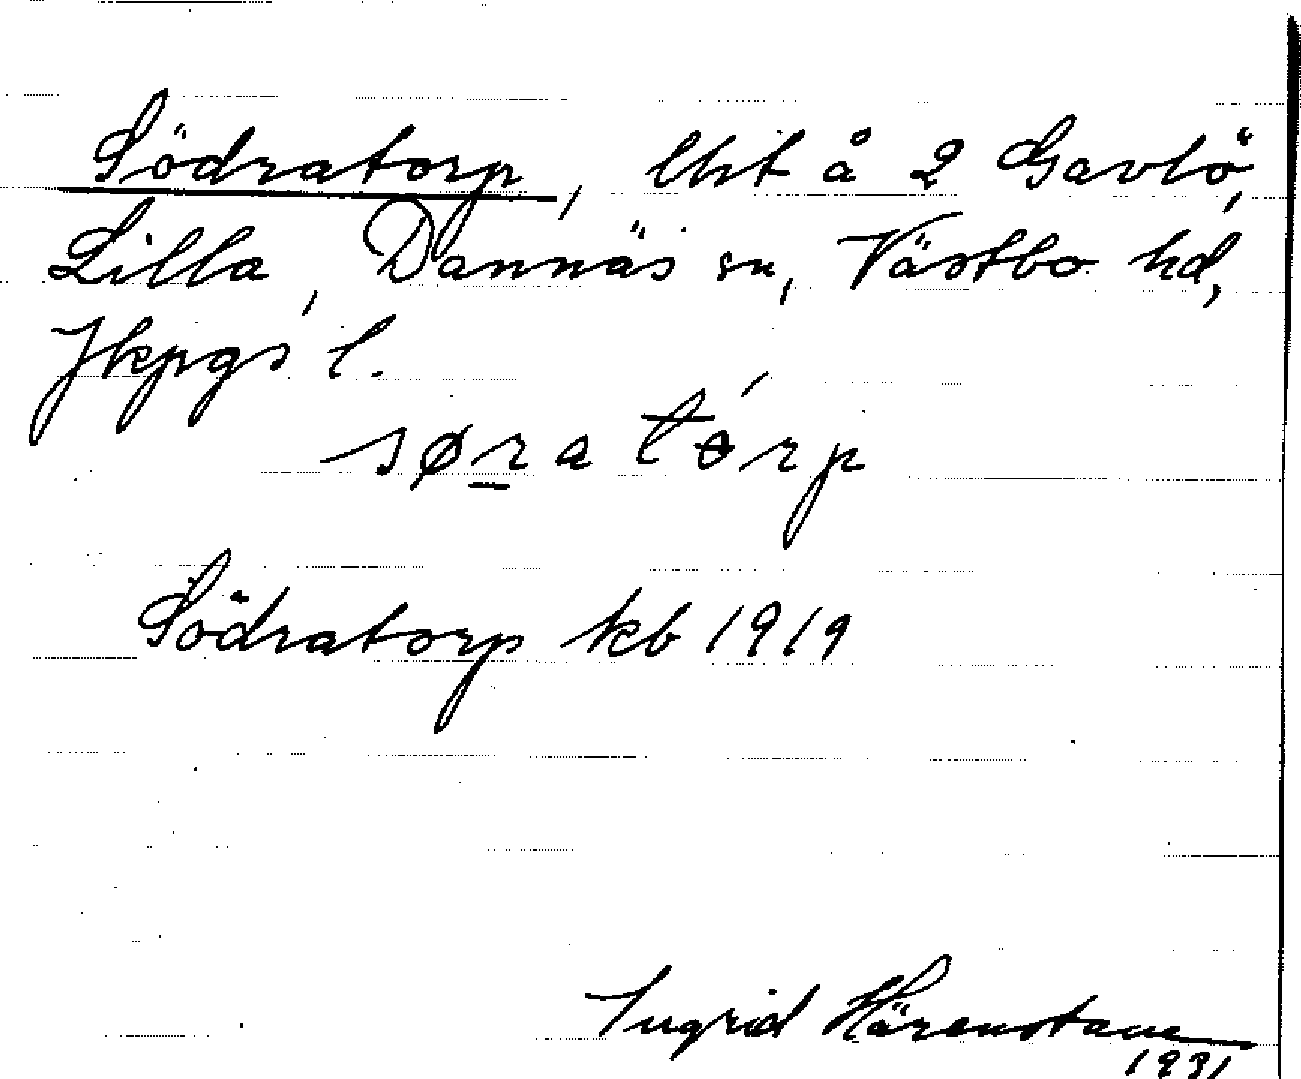 Södratorp, lht å 2 Gavlö,
Lilla, Dannäs sn, Västbo hd,
Jkpgs l.
søra tórp
Södratorp kb 1919
Ingrid Härenstam
1931